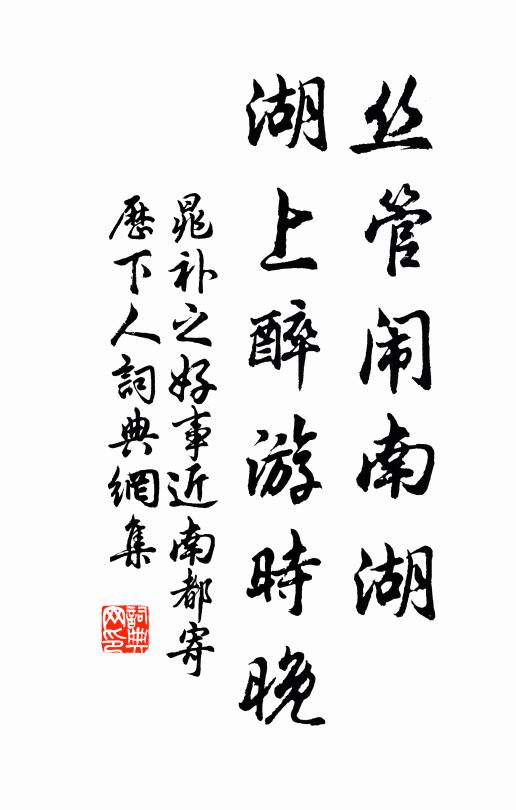 丝管闹南湖
湖上醉游時晚
晁补之好事近南都寄
歷下人詞典網集
詞典网印